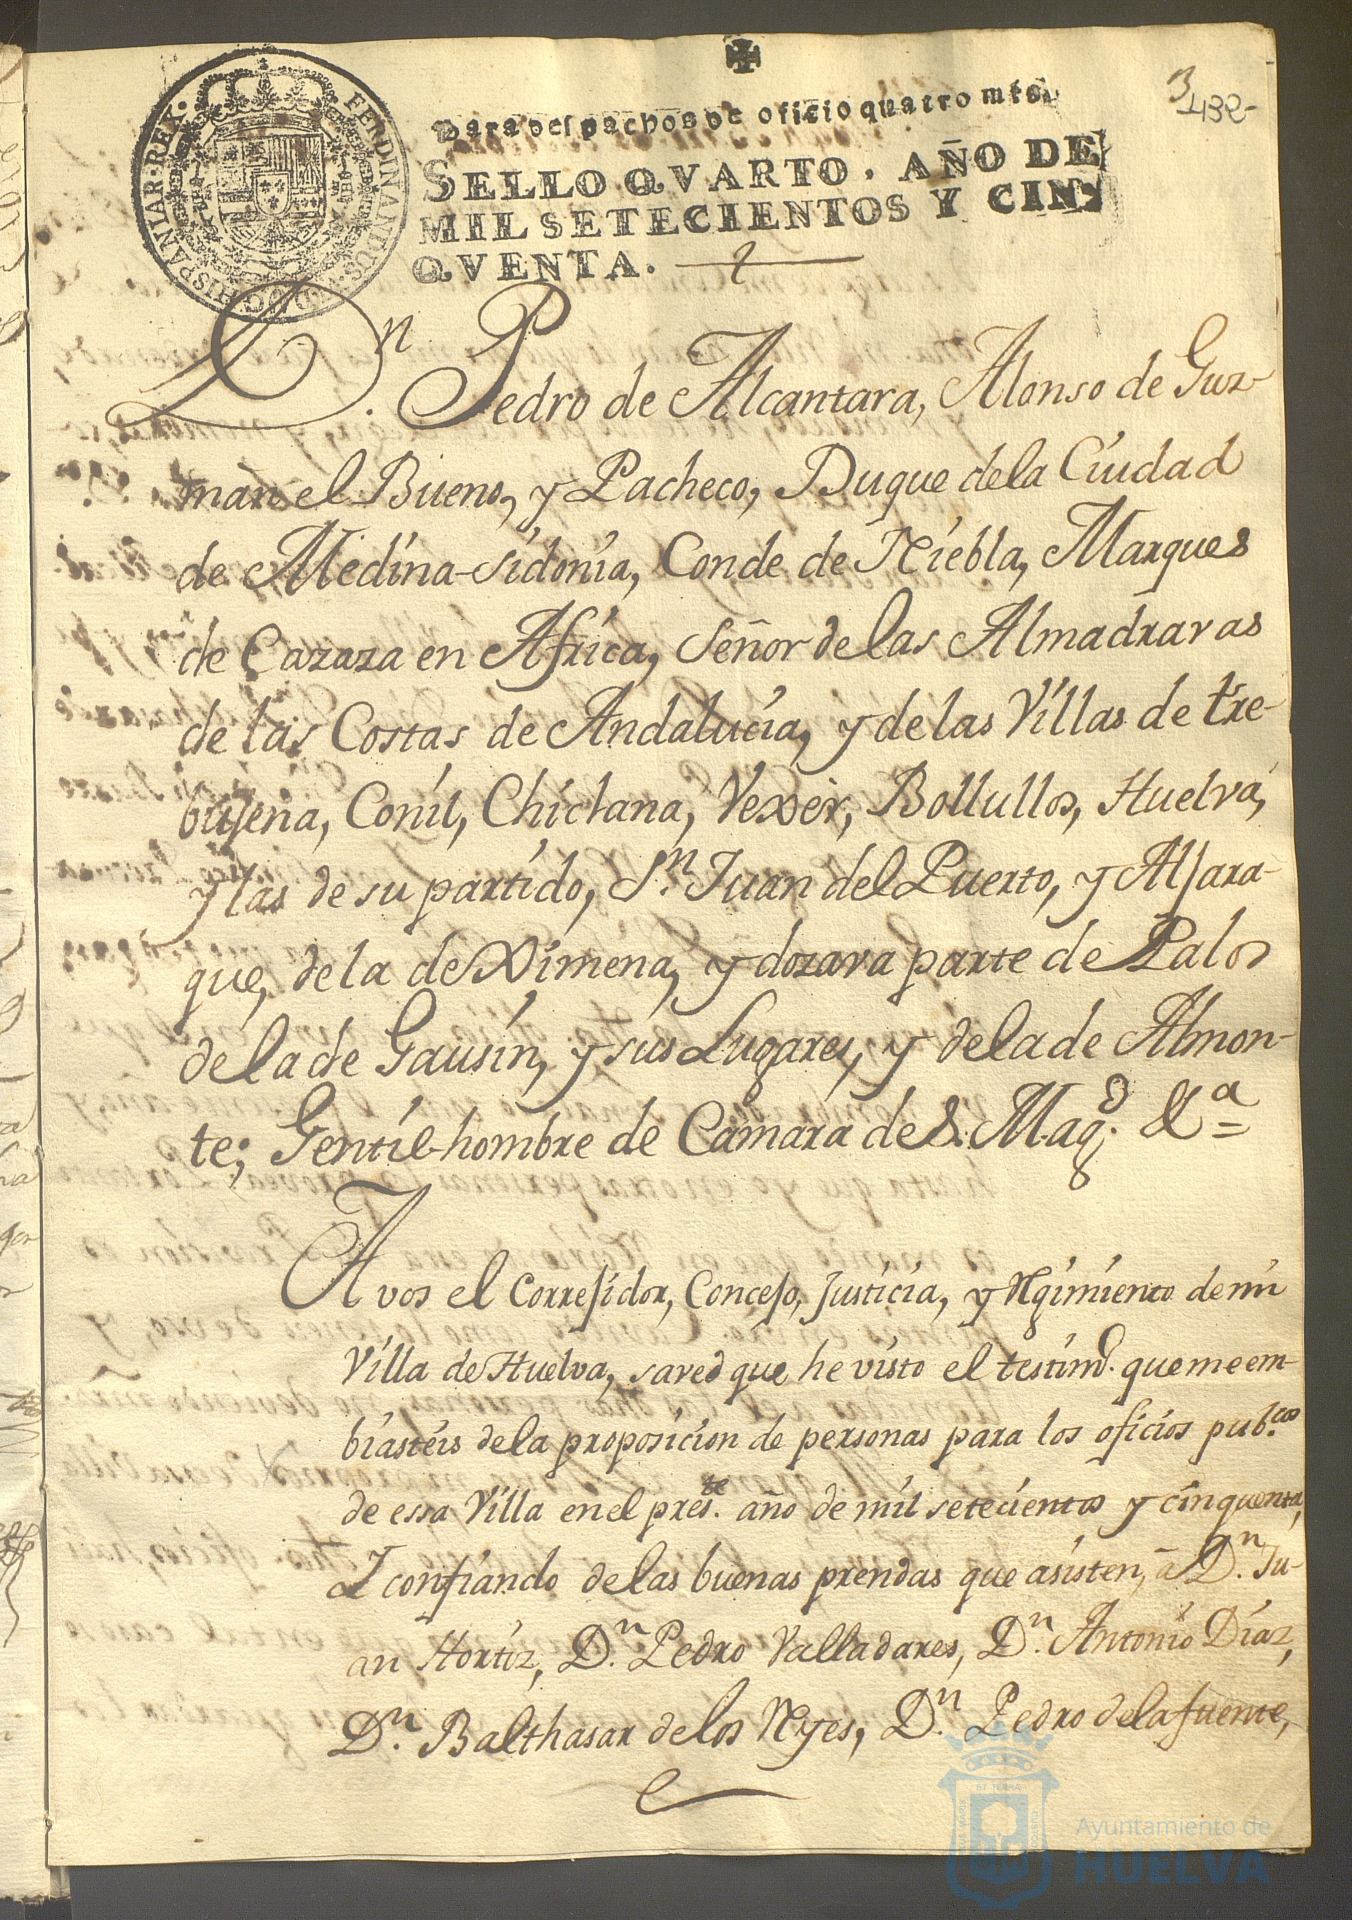 3
432-
para despachos de oficio quatro mrs.
SELLO QVARTO, AÑO DE
MIL SETECIENTOS Y CIN-
QVENTA.
FERDINANDUS HISPANIAR·REX·
Dn. Pedro de Alcantara, Alonso de Guz-
man el Bueno, y Pacheco, Duque de la Ciudad
de Medina-Sidonia, Conde de Niebla, Marques
de Cazaza en Africa, Señor de las Almadravas
de las Costas de Andalucia, y de las Villas de tre-
bujena, Conil, Chiclana, Vexer, Bollullos, Huelva,
y las de su partido, Sn. Juan del Puerto, y Aljara-
que, de la de Ximena, y dozava parte de Palos
de la de Gausin, y sus Lugares, y de la de Almon-
te; Gentil-hombre de Camara de S. Magd. &a=
A vos el Corregidor, Concejo, Justicia, y Rgimiento de mi
Villa de Huelva, saved que he visto el testimo. que me em-
biasteis de la proposicion de personas para los oficios pubcos.
de essa Villa en el preste. año de mil setecientos y cinquenta,
I confiando de las buenas prendas que asisten, à Dn. Ju-
an Hortiz, Dn. Pedro Valladares, Dn. Antonio Diaz,
Dn. Balthasar de los Ryes, Dn. Pedro de la fuente,
Ayuntamiento de
HUELVA